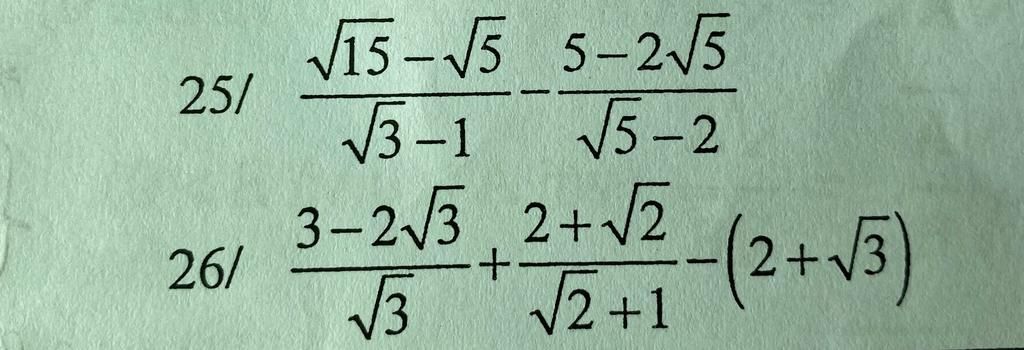 25/ \frac{\sqrt{15}-\sqrt{5}}{\sqrt{3}-1}-\frac{5-2\sqrt{5}}{\sqrt{5}-2}
26/ \frac{3-2\sqrt{3}}{\sqrt{3}}+\frac{2+\sqrt{2}}{\sqrt{2}+1}-(2+\sqrt{3})